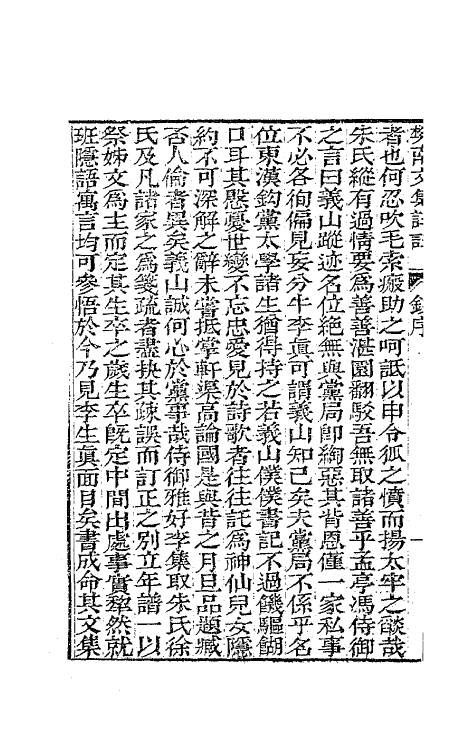 樊南文集詳註 錢序 一
者也何忍吹毛索瘢助之呵詆以申令狐之憤而揚太牢之燄哉
朱氏縱有過情要爲善善湛園翻駁吾無取諸善乎孟亭馮侍御
之言曰義山蹤迹名位絕無與黨局卽綯惡其背恩僅一家私事
不必各徇偏見妄分牛李眞可謂義山知己矣夫黨局不係乎名
位東漢鈎黨太學諸生猶得持之若義山僕僕書記不過饑驅餬
口耳其愍憂世變不忘忠愛見於詩歌者往往託爲神仙兒女隱
約不可深解之辭未嘗抵掌軒渠高論國是與昔之月旦品題臧
否人倫者異矣義山誠何心於黨事哉侍御雅好李集取朱氏徐
氏及凡諸家之爲箋疏者盡抉其疎誤而訂正之别立年譜一以
祭姊文爲主而定其生卒之歲生卒旣定中間出處事實犂然就
班隱語寓言均可參悟於今乃見李生眞面目矣書成命其文集